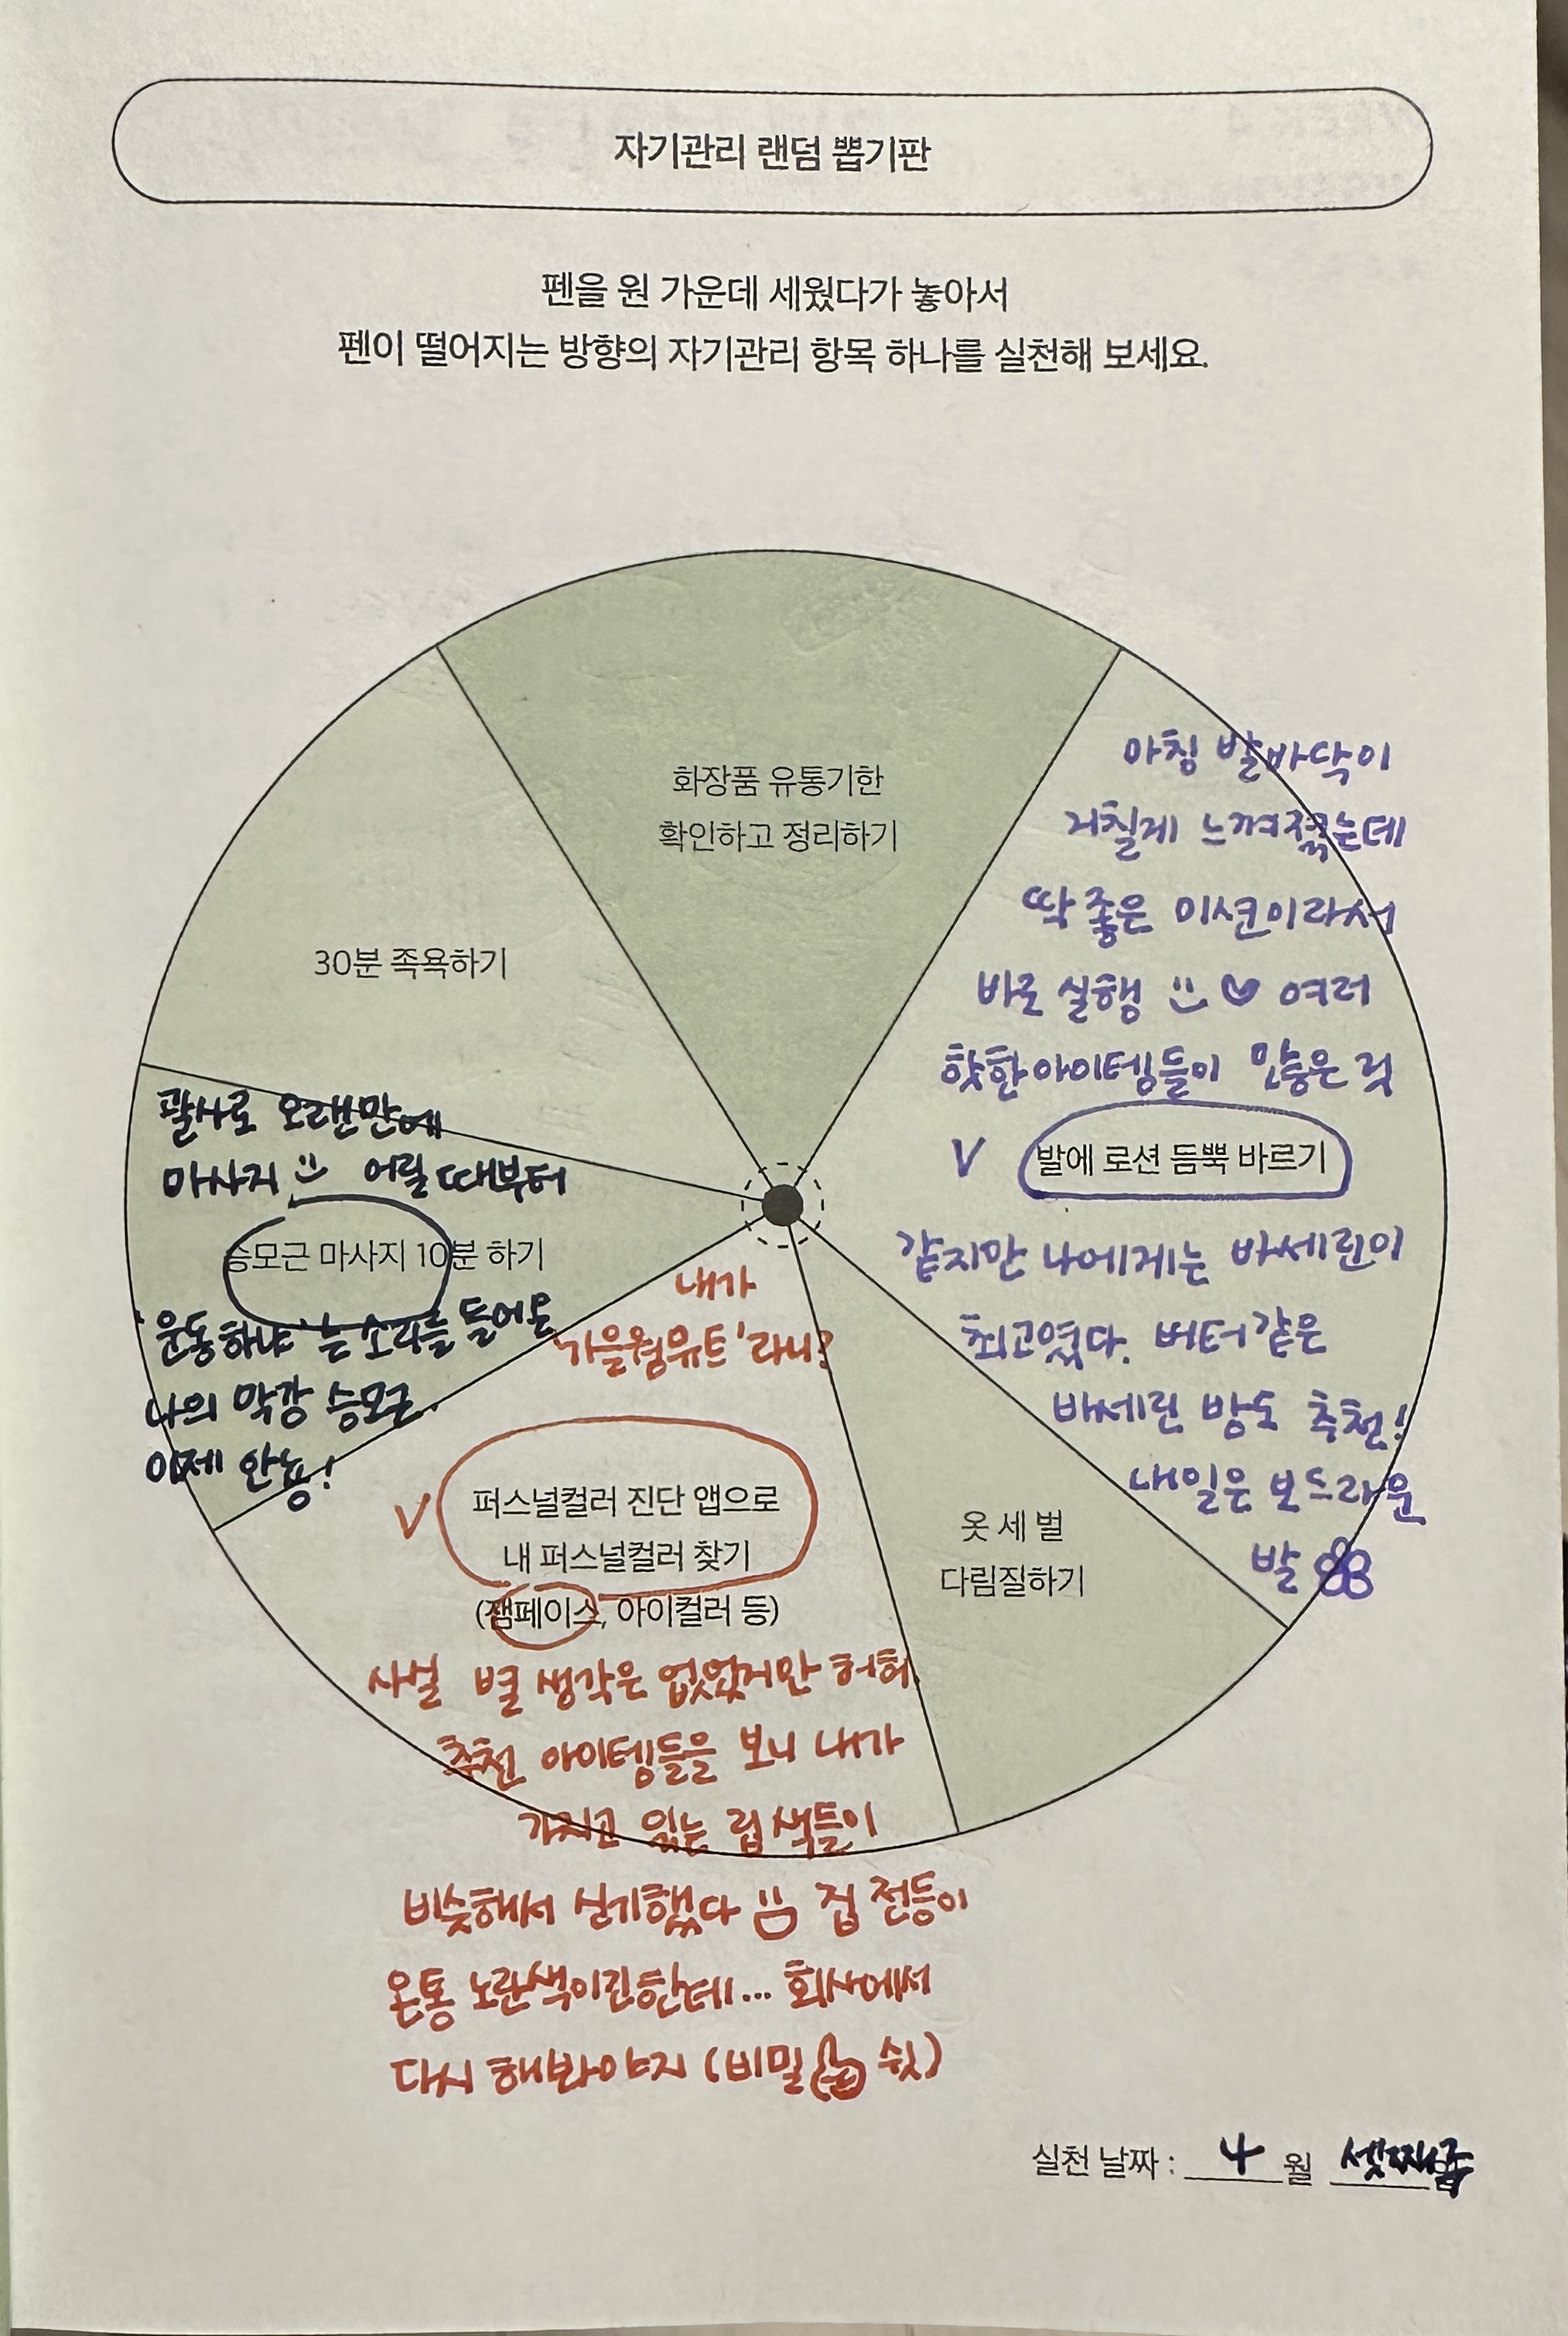 자기관리 랜덤 뽑기판
펜을 원 가운데 세웠다가 놓아서
펜이 떨어지는 방향의 자기관리 항목 하나를 실천해 보세요.
화장품 유통기한
확인하고 정리하기
30분 족욕하기
아침 발바닥이
거칠게 느껴졌는데
딱 좋은 미션이라서
바로 실행 여러
핫한 아이템들이 많은 것
V 발에 로션 듬뿍 바르기
같지만 나에게는 바세린이
최고였다. 버터 같은
바세린 밤도 추천!
내일은 보드라운
발
괄사로 오랜만에
마사지 어릴 때부터
승모근 마사지 10분 하기
'운동하냐'는 소리를 들어온
나의 막강 승모근.
이제 안뇽!
내가
'가을웜뮤트'라니?
V 퍼스널컬러 진단 앱으로
내 퍼스널컬러 찾기
(잼페이스, 아이컬러 등)
사실 별 생각은 없었지만 허허
추천 아이템들을 보니 내가
가지고 있는 립 색들이
비슷해서 신기했다 집 전등이
온통 노란색이긴한데... 회사에서
다시 해봐야지 (비밀 쉿)
옷 세 벌
다림질하기
실천 날짜 : 4 월 셋째주